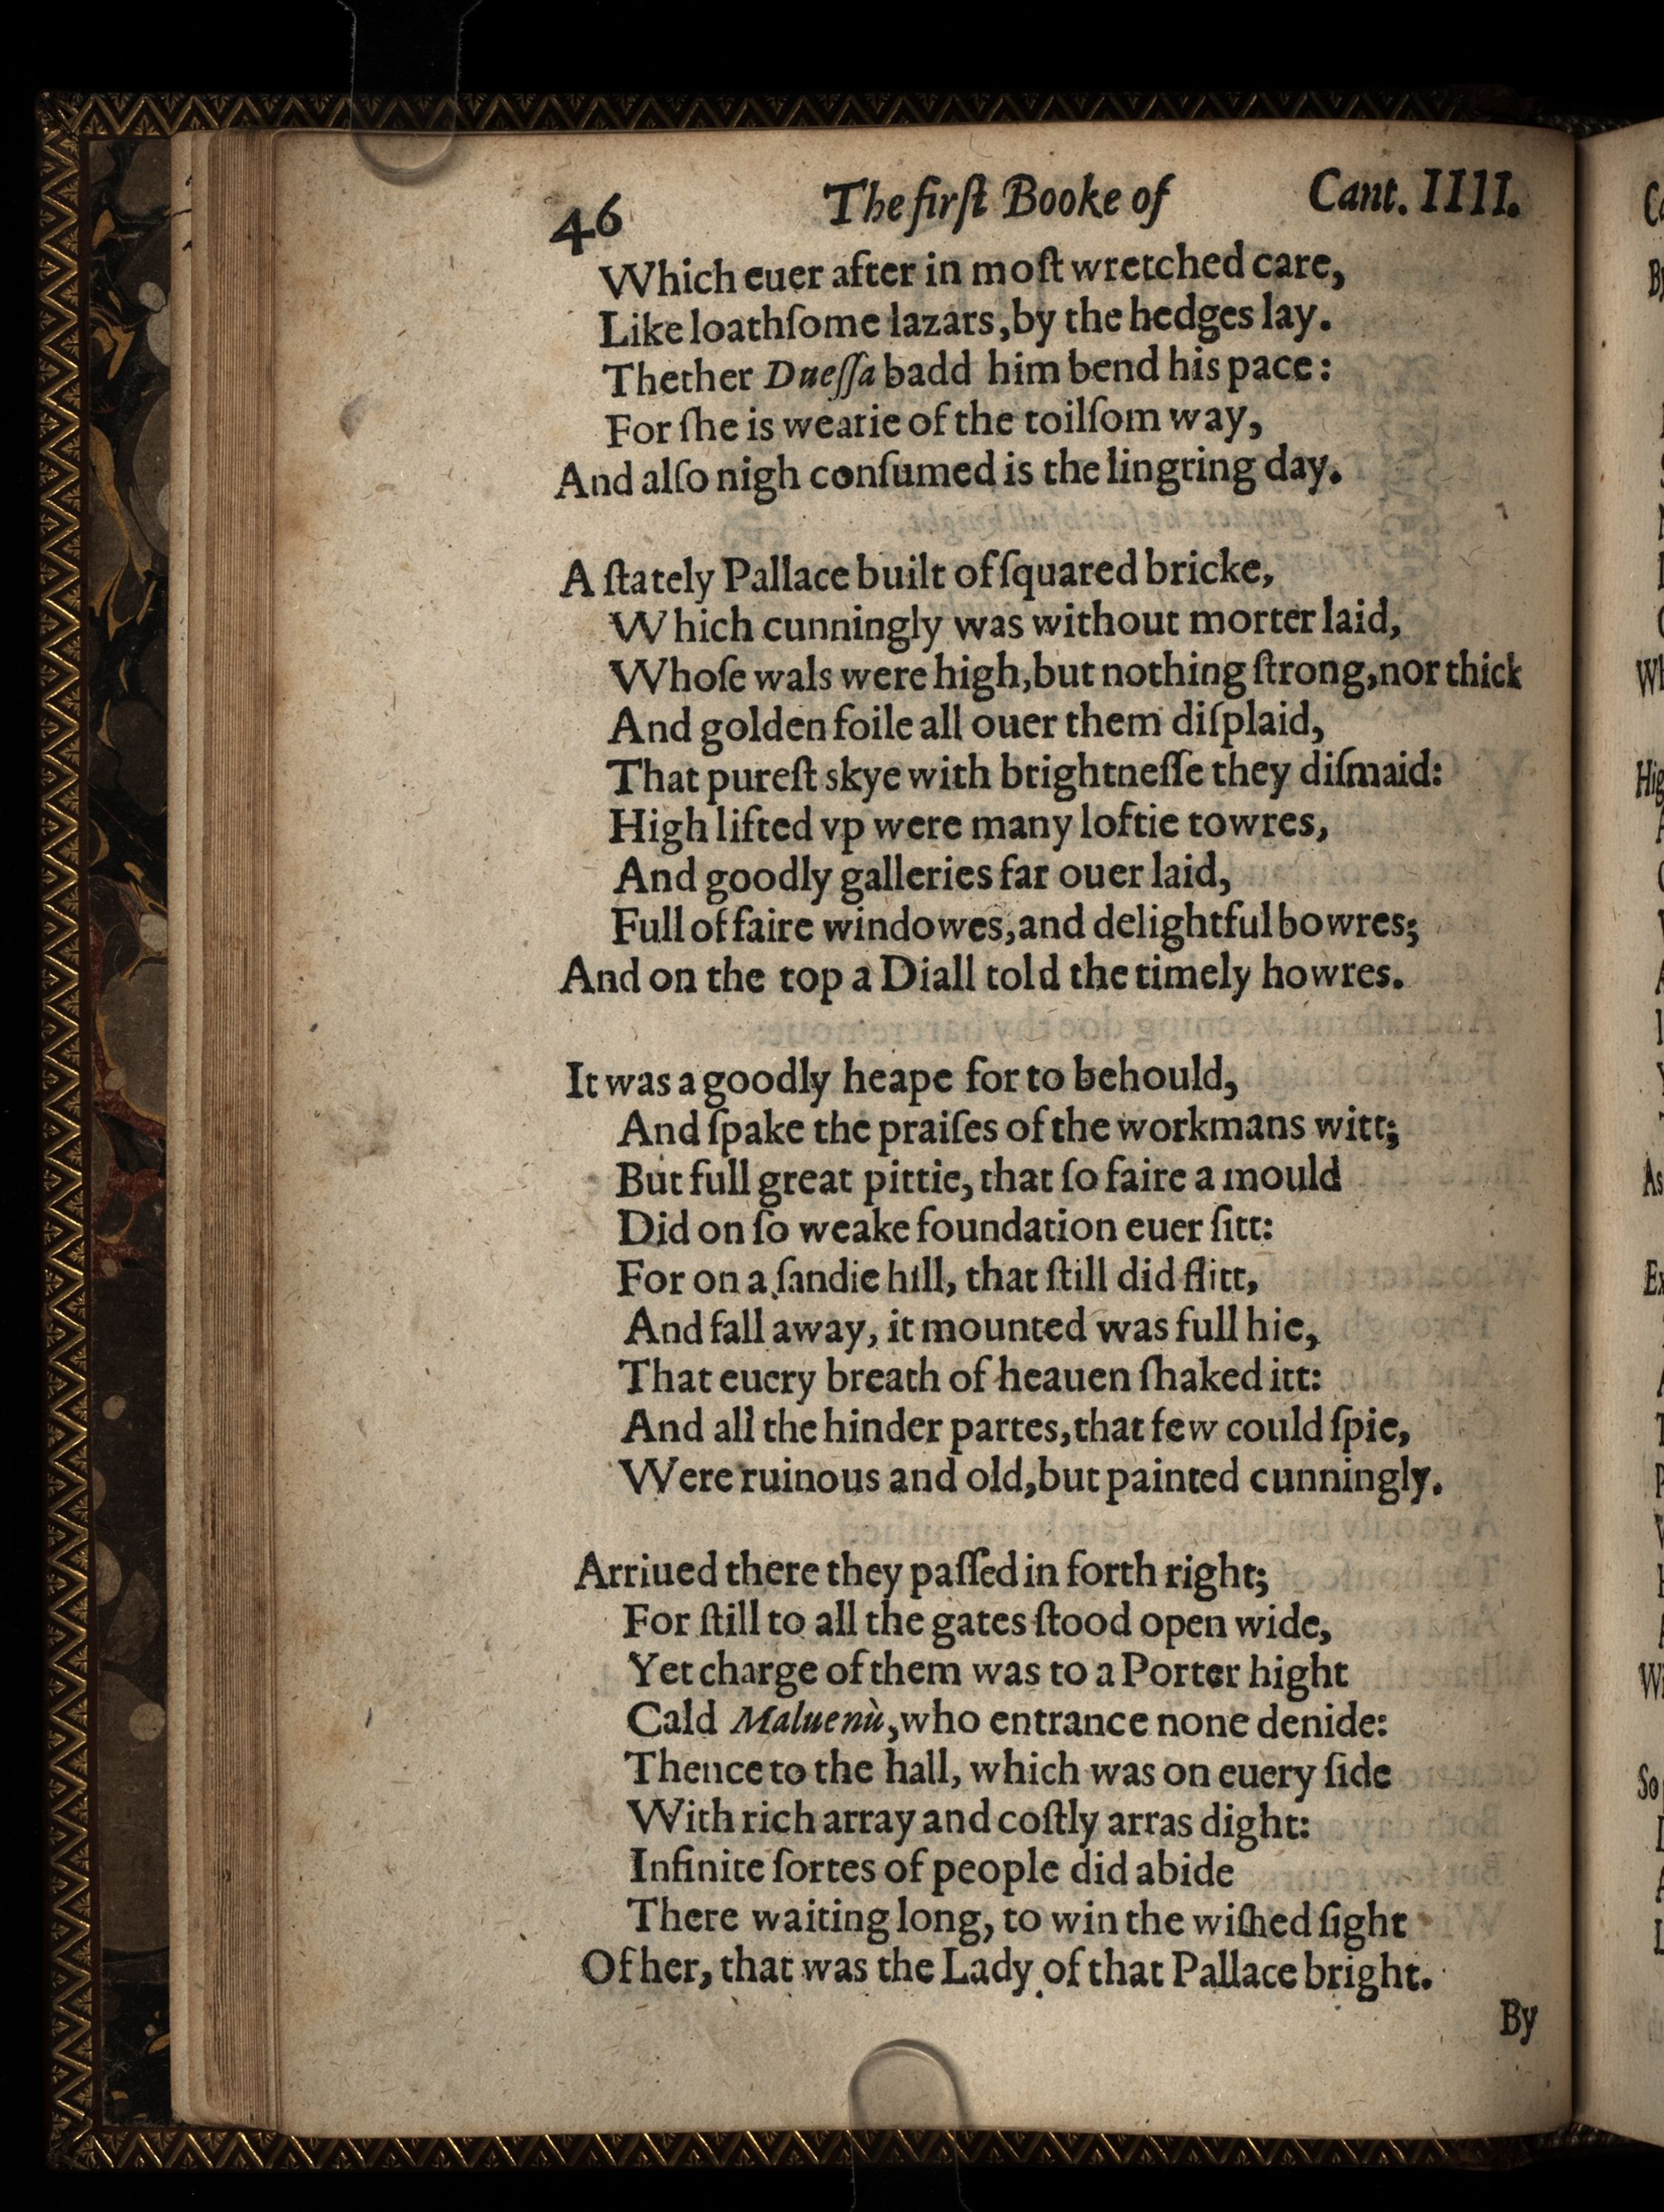 46 The firſt Booke of Cant. IIII.
Which euer after in moſt wretched care,
Like loathſome lazars, by the hedges lay.
Thether Dueſſa badd him bend his pace:
For ſhe is wearie of the toilſom way,
And alſo nigh conſumed is the lingring day.
A ſtately Pallace built of ſquared bricke,
Which cunningly was without morter laid,
Whoſe wals were high, but nothing ſtrong, nor thick
And golden foile all ouer them diſplaid,
That pureſt skye with brightneſſe they diſmaid:
High lifted vp were many loftie towres,
And goodly galleries far ouer laid,
Full of faire windowes, and delightful bowres;
And on the top a Diall told the timely howres.
It was a goodly heape for to behould,
And ſpake the praiſes of the workmans witt;
But full great pittie, that ſo faire a mould
Did on ſo weake foundation euer ſitt:
For on a ſandie hill, that ſtill did flitt,
And fall away, it mounted was full hie,
That euery breath of heauen ſhaked itt:
And all the hinder partes, that few could ſpie,
Were ruinous and old, but painted cunningly.
Arriued there they paſſed in forth right;
For ſtill to all the gates ſtood open wide,
Yet charge of them was to a Porter hight
Cald Maluenù, who entrance none denide:
Thence to the hall, which was on euery ſide
With rich array and coſtly arras dight:
Infinite ſortes of people did abide
There waiting long, to win the wiſhed ſight
Of her, that was the Lady of that Pallace bright.
By